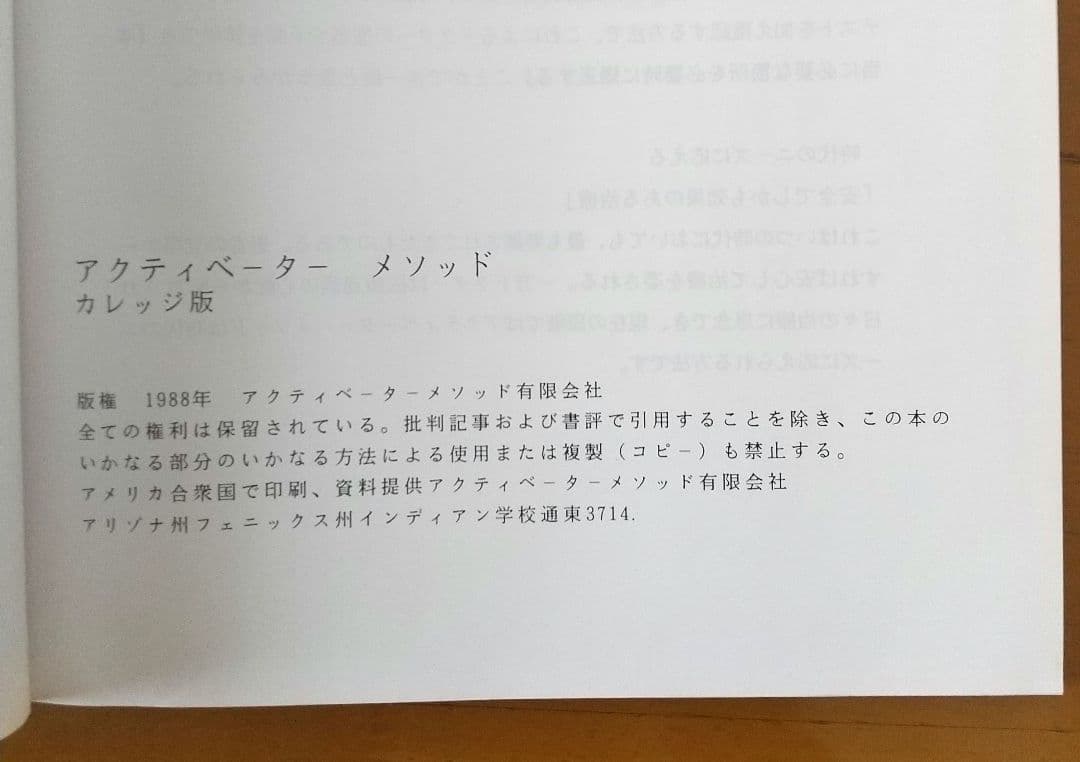 アクティベーター　メソッド
カレッジ版
版権　1988年　アクティベーターメソッド有限会社
全ての権利は保留されている。批判記事および書評で引用することを除き、この本の
いかなる部分のいかなる方法による使用または複製（コピー）も禁止する。
アメリカ合衆国で印刷、資料提供アクティベーターメソッド有限会社
アリゾナ州フェニックス州インディアン学校通東3714.
時代のニーズに応える
「安全でしかも効果のある治療」